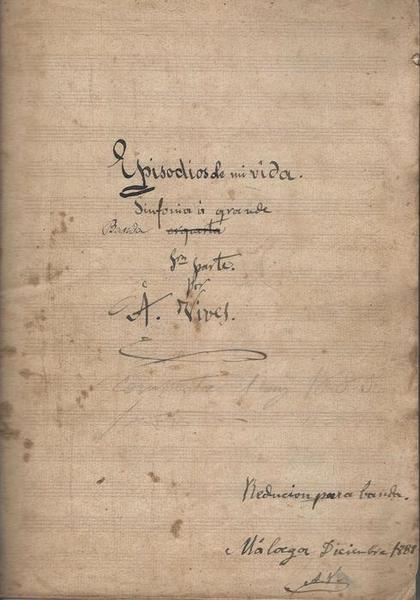 Episodios de mi vida.
Sinfonia á grande
Banda orquesta
1ra parte.
por
A. Vives.
Reducion para banda.
Málaga Diciembre 1888